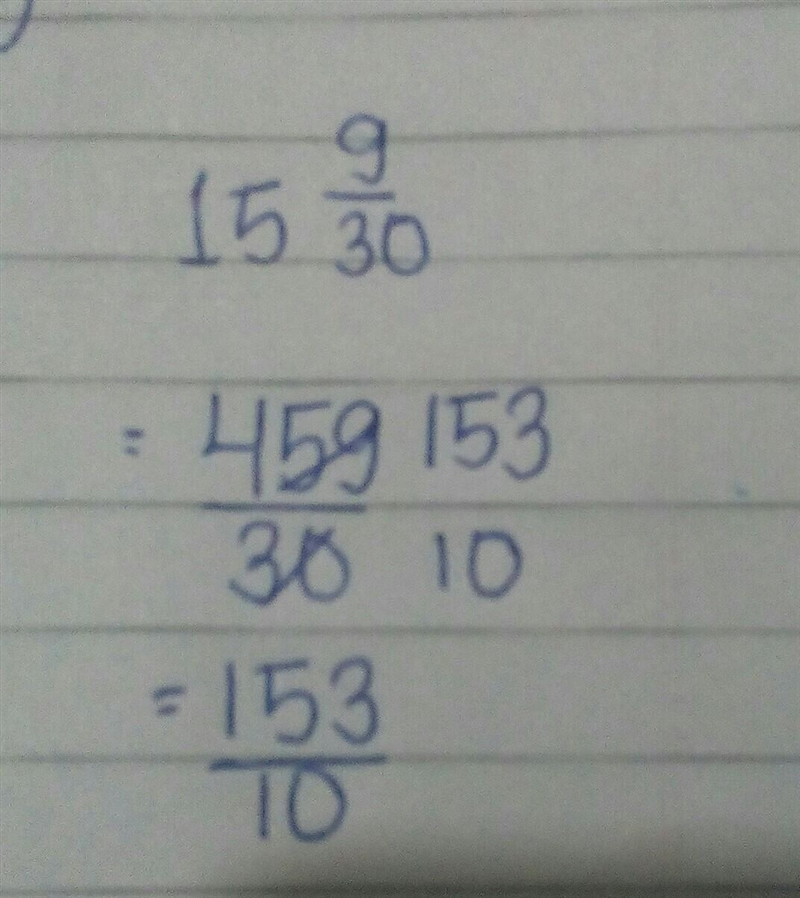 15 9/30
= 459/30 153/10
= 153/10